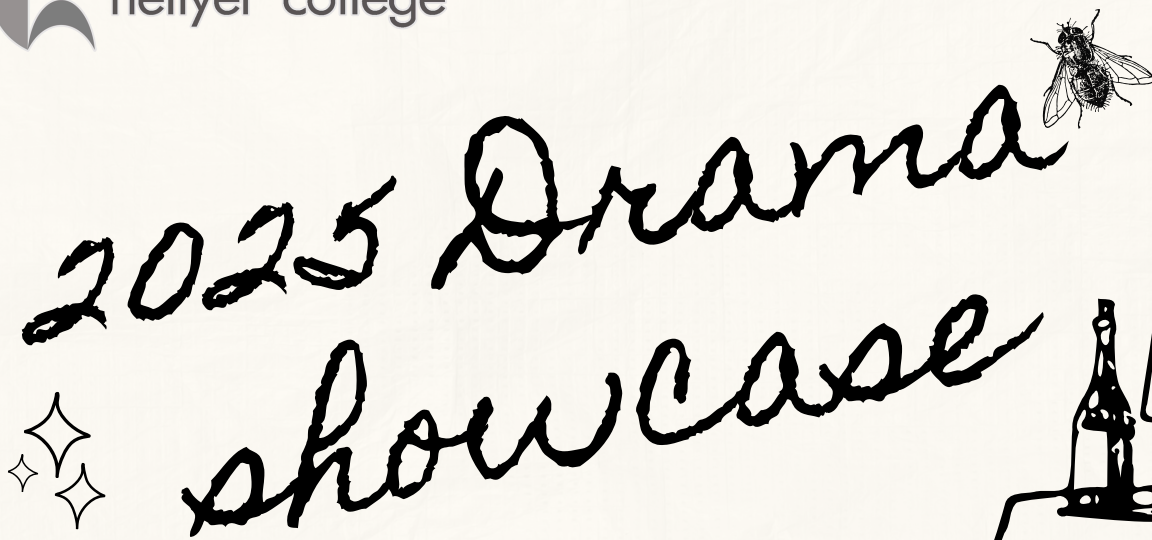 hellyer college
2025 Drama
showcase